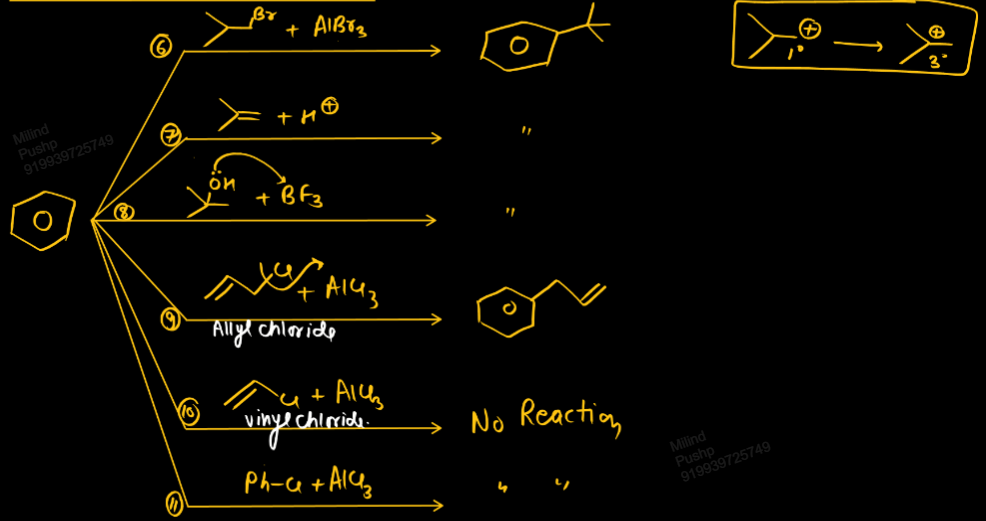 ⑥ Br + AlBr3
1° ⊕ → ⊕ 3°
⑦ + H⊕
"
⑧ ÖH + BF3
"
⑨ Cl + AlCl3
Allyl chloride
⑩ Cl + AlCl3
vinyl chloride.
No Reaction
⑪ Ph-Cl + AlCl3
" "
Milind
Pushp
919939725749
Milind
Pushp
919939725749